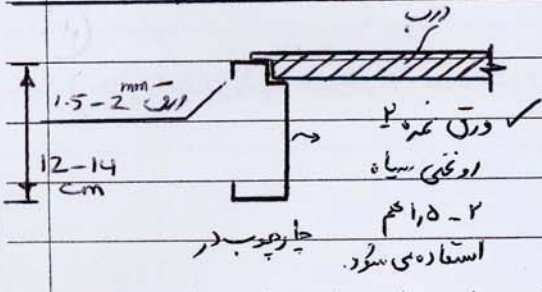 درب
ورق 1.5-2 mm
12-14
cm
✓ ورق نمره ۲
روغنی سیاه
۲ - ۱٫۵ مم
استفاده می شود.
چارچوب در